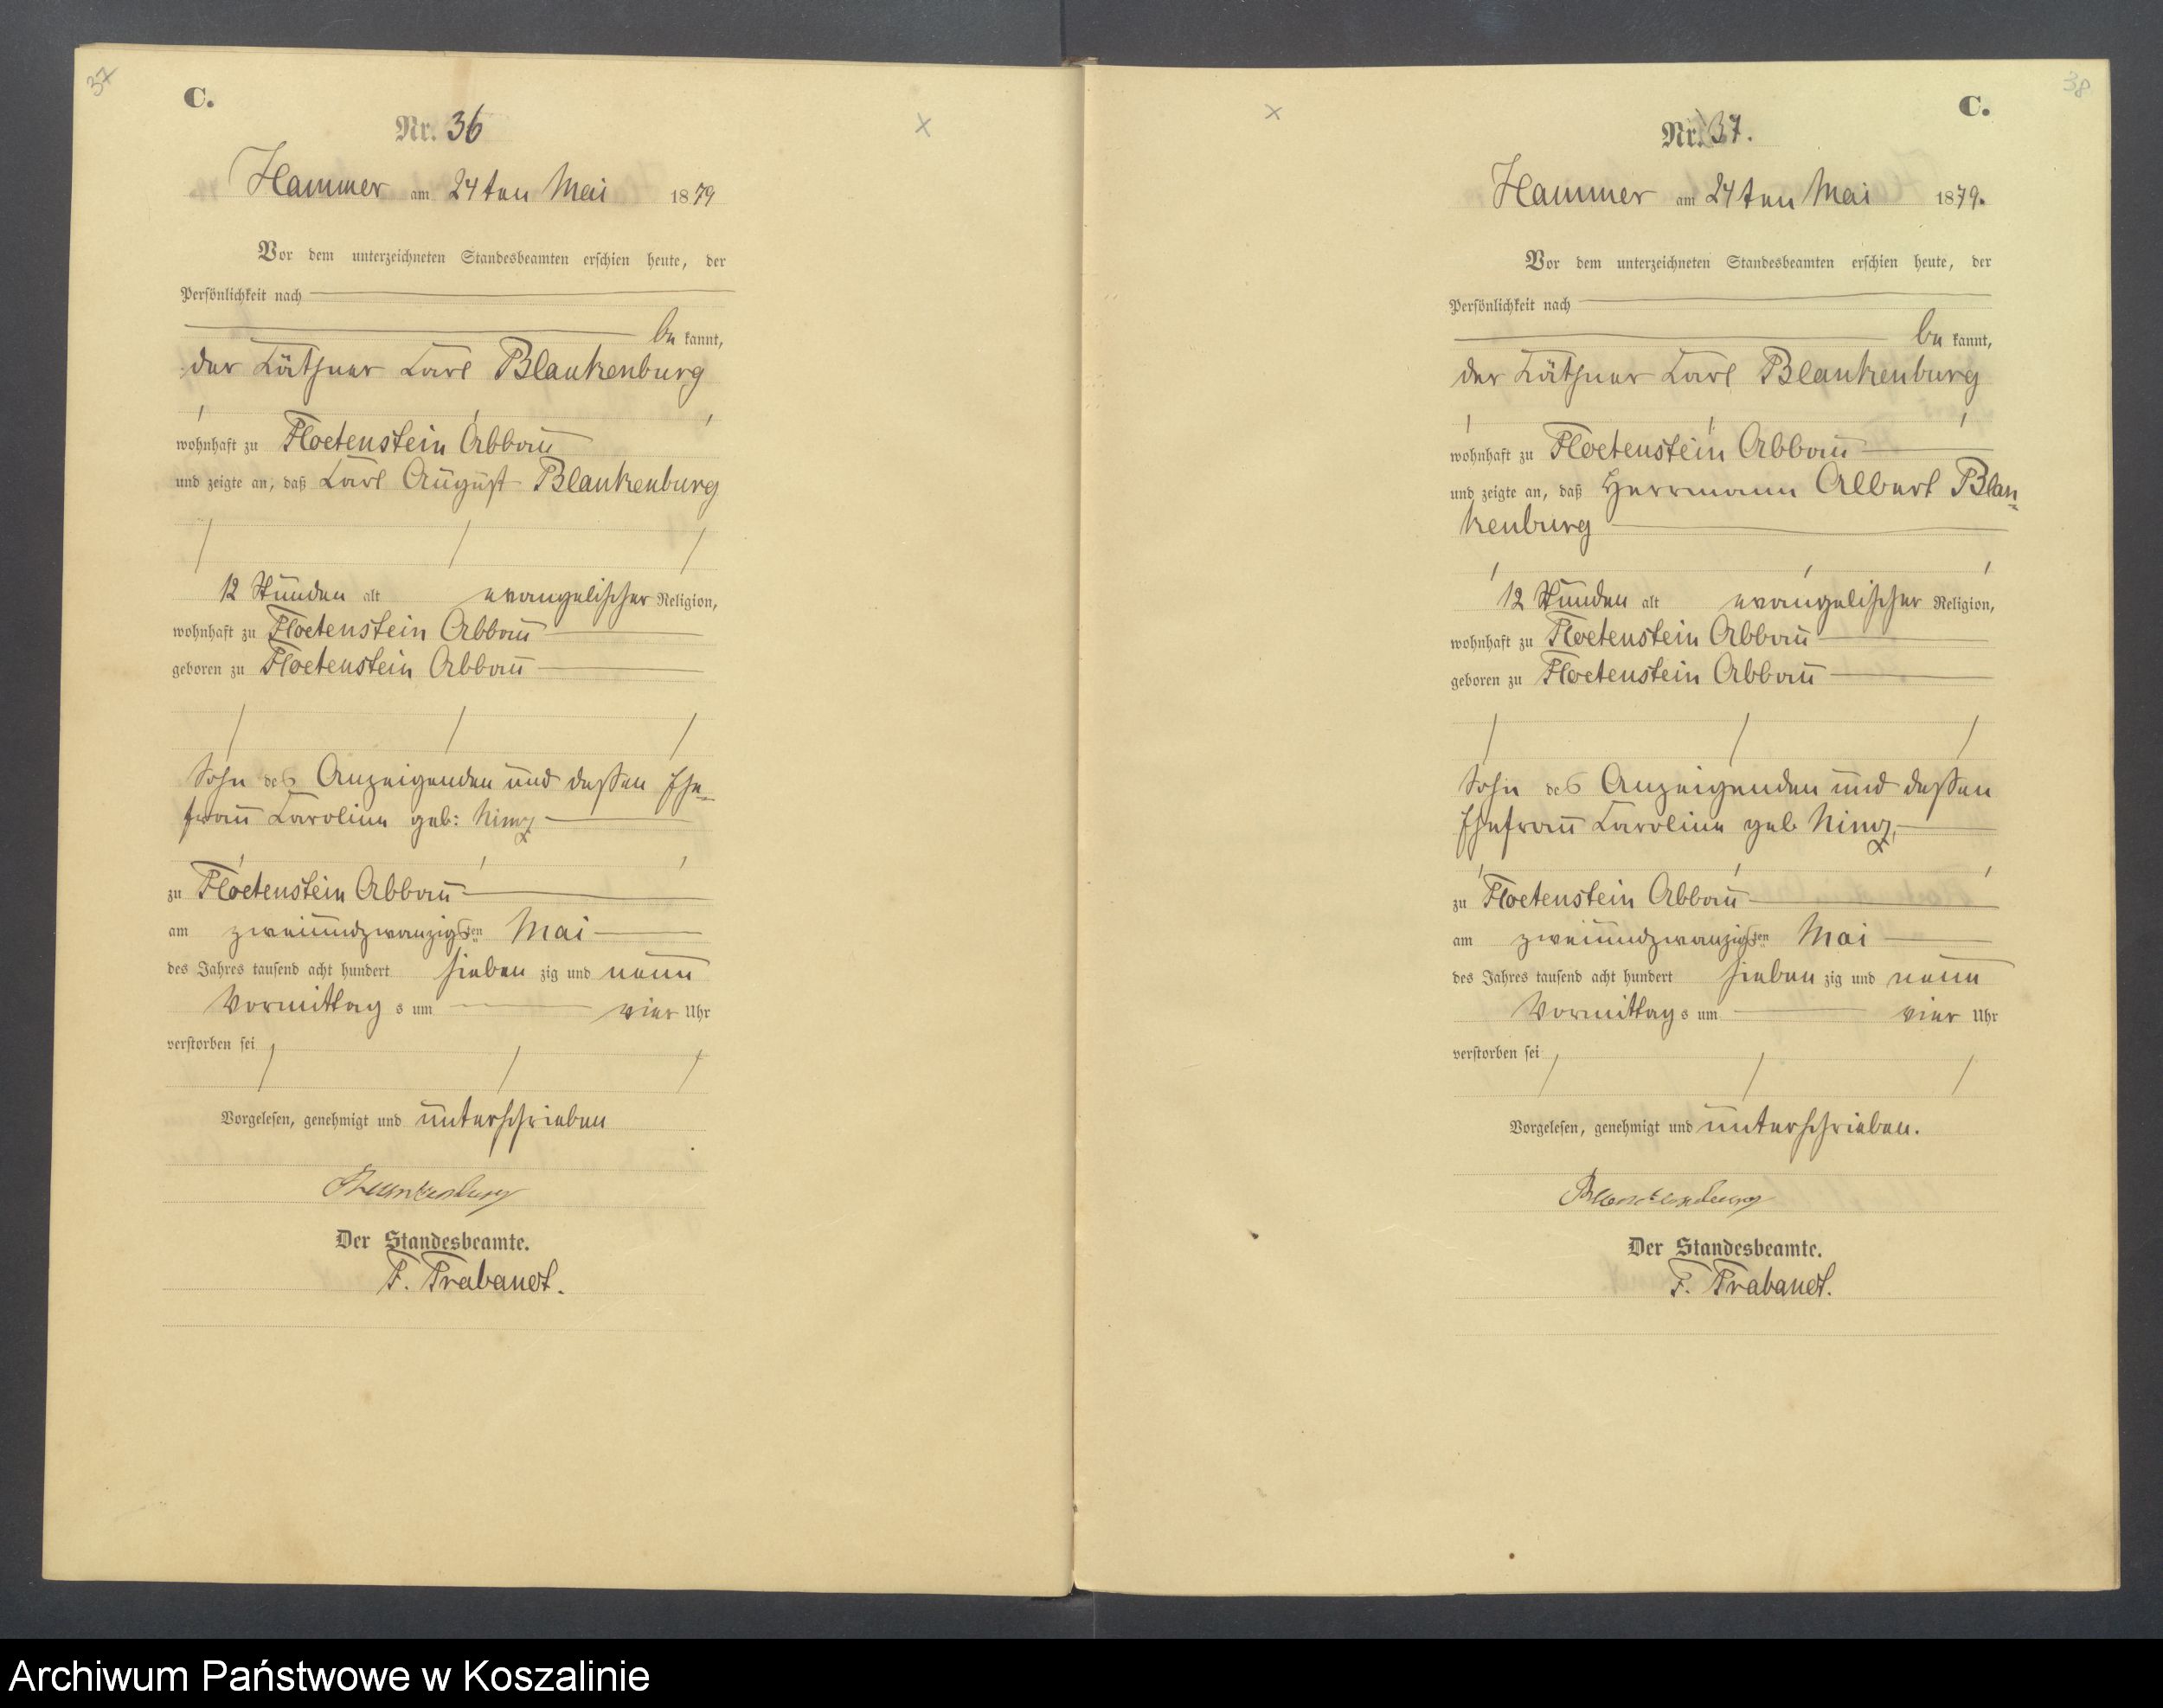 37
C.
Nr. 36
Hammer am 24ten Mai 1879
Vor dem unterzeichneten Standesbeamten erschien heute, der
Persönlichkeit nach
be kannt,
der Käthner Carl Blankenburg
wohnhaft zu Floetenstein Abbau
und zeigte an, daß Carl August Blankenburg
12 Stunden alt evangelischer Religion,
wohnhaft zu Floetenstein Abbau
geboren zu Floetenstein Abbau
Sohn des Anzeigenden und dessen Ehe-
frau Caroline geb: Nimz
zu Floetenstein Abbau
am zweiundzwanzigsten Mai
des Jahres tausend acht hundert sieben zig und neun
Vormittag s um vier Uhr
verstorben sei
Vorgelesen, genehmigt und unterschrieben
Blankenburg
Der Standesbeamte.
F. Trabandt.
38
C.
Nr. 37.
Hammer am 24ten Mai 1879.
Vor dem unterzeichneten Standesbeamten erschien heute, der
Persönlichkeit nach
be kannt,
der Käthner Carl Blankenburg
wohnhaft zu Floetenstein Abbau
und zeigte an, daß Herrmann Albert Blan-
kenburg
12 Stunden alt evangelischer Religion,
wohnhaft zu Floetenstein Abbau
geboren zu Floetenstein Abbau
Sohn des Anzeigenden und dessen
Ehefrau Caroline geb Nimz,
zu Floetenstein Abbau
am zweiundzwanzigsten Mai
des Jahres tausend acht hundert sieben zig und neun
Vormittag s um vier Uhr
verstorben sei
Vorgelesen, genehmigt und unterschrieben.
Blankenburg
Der Standesbeamte.
F. Trabandt.
Archiwum Państwowe w Koszalinie